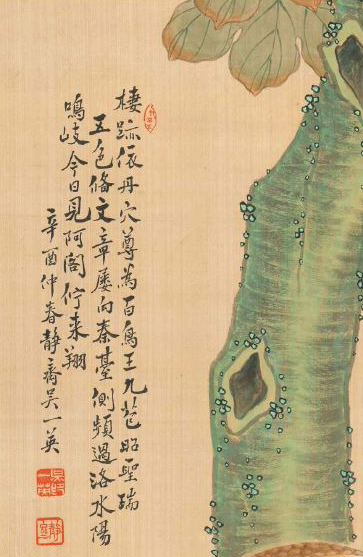 棲跡依丹穴尊為百鳥王九苞昭聖瑞
五色備文章屢向秦臺側頻過洛水陽
鳴岐今日見阿閣佇來翔
辛酉仲春靜齋吳一英